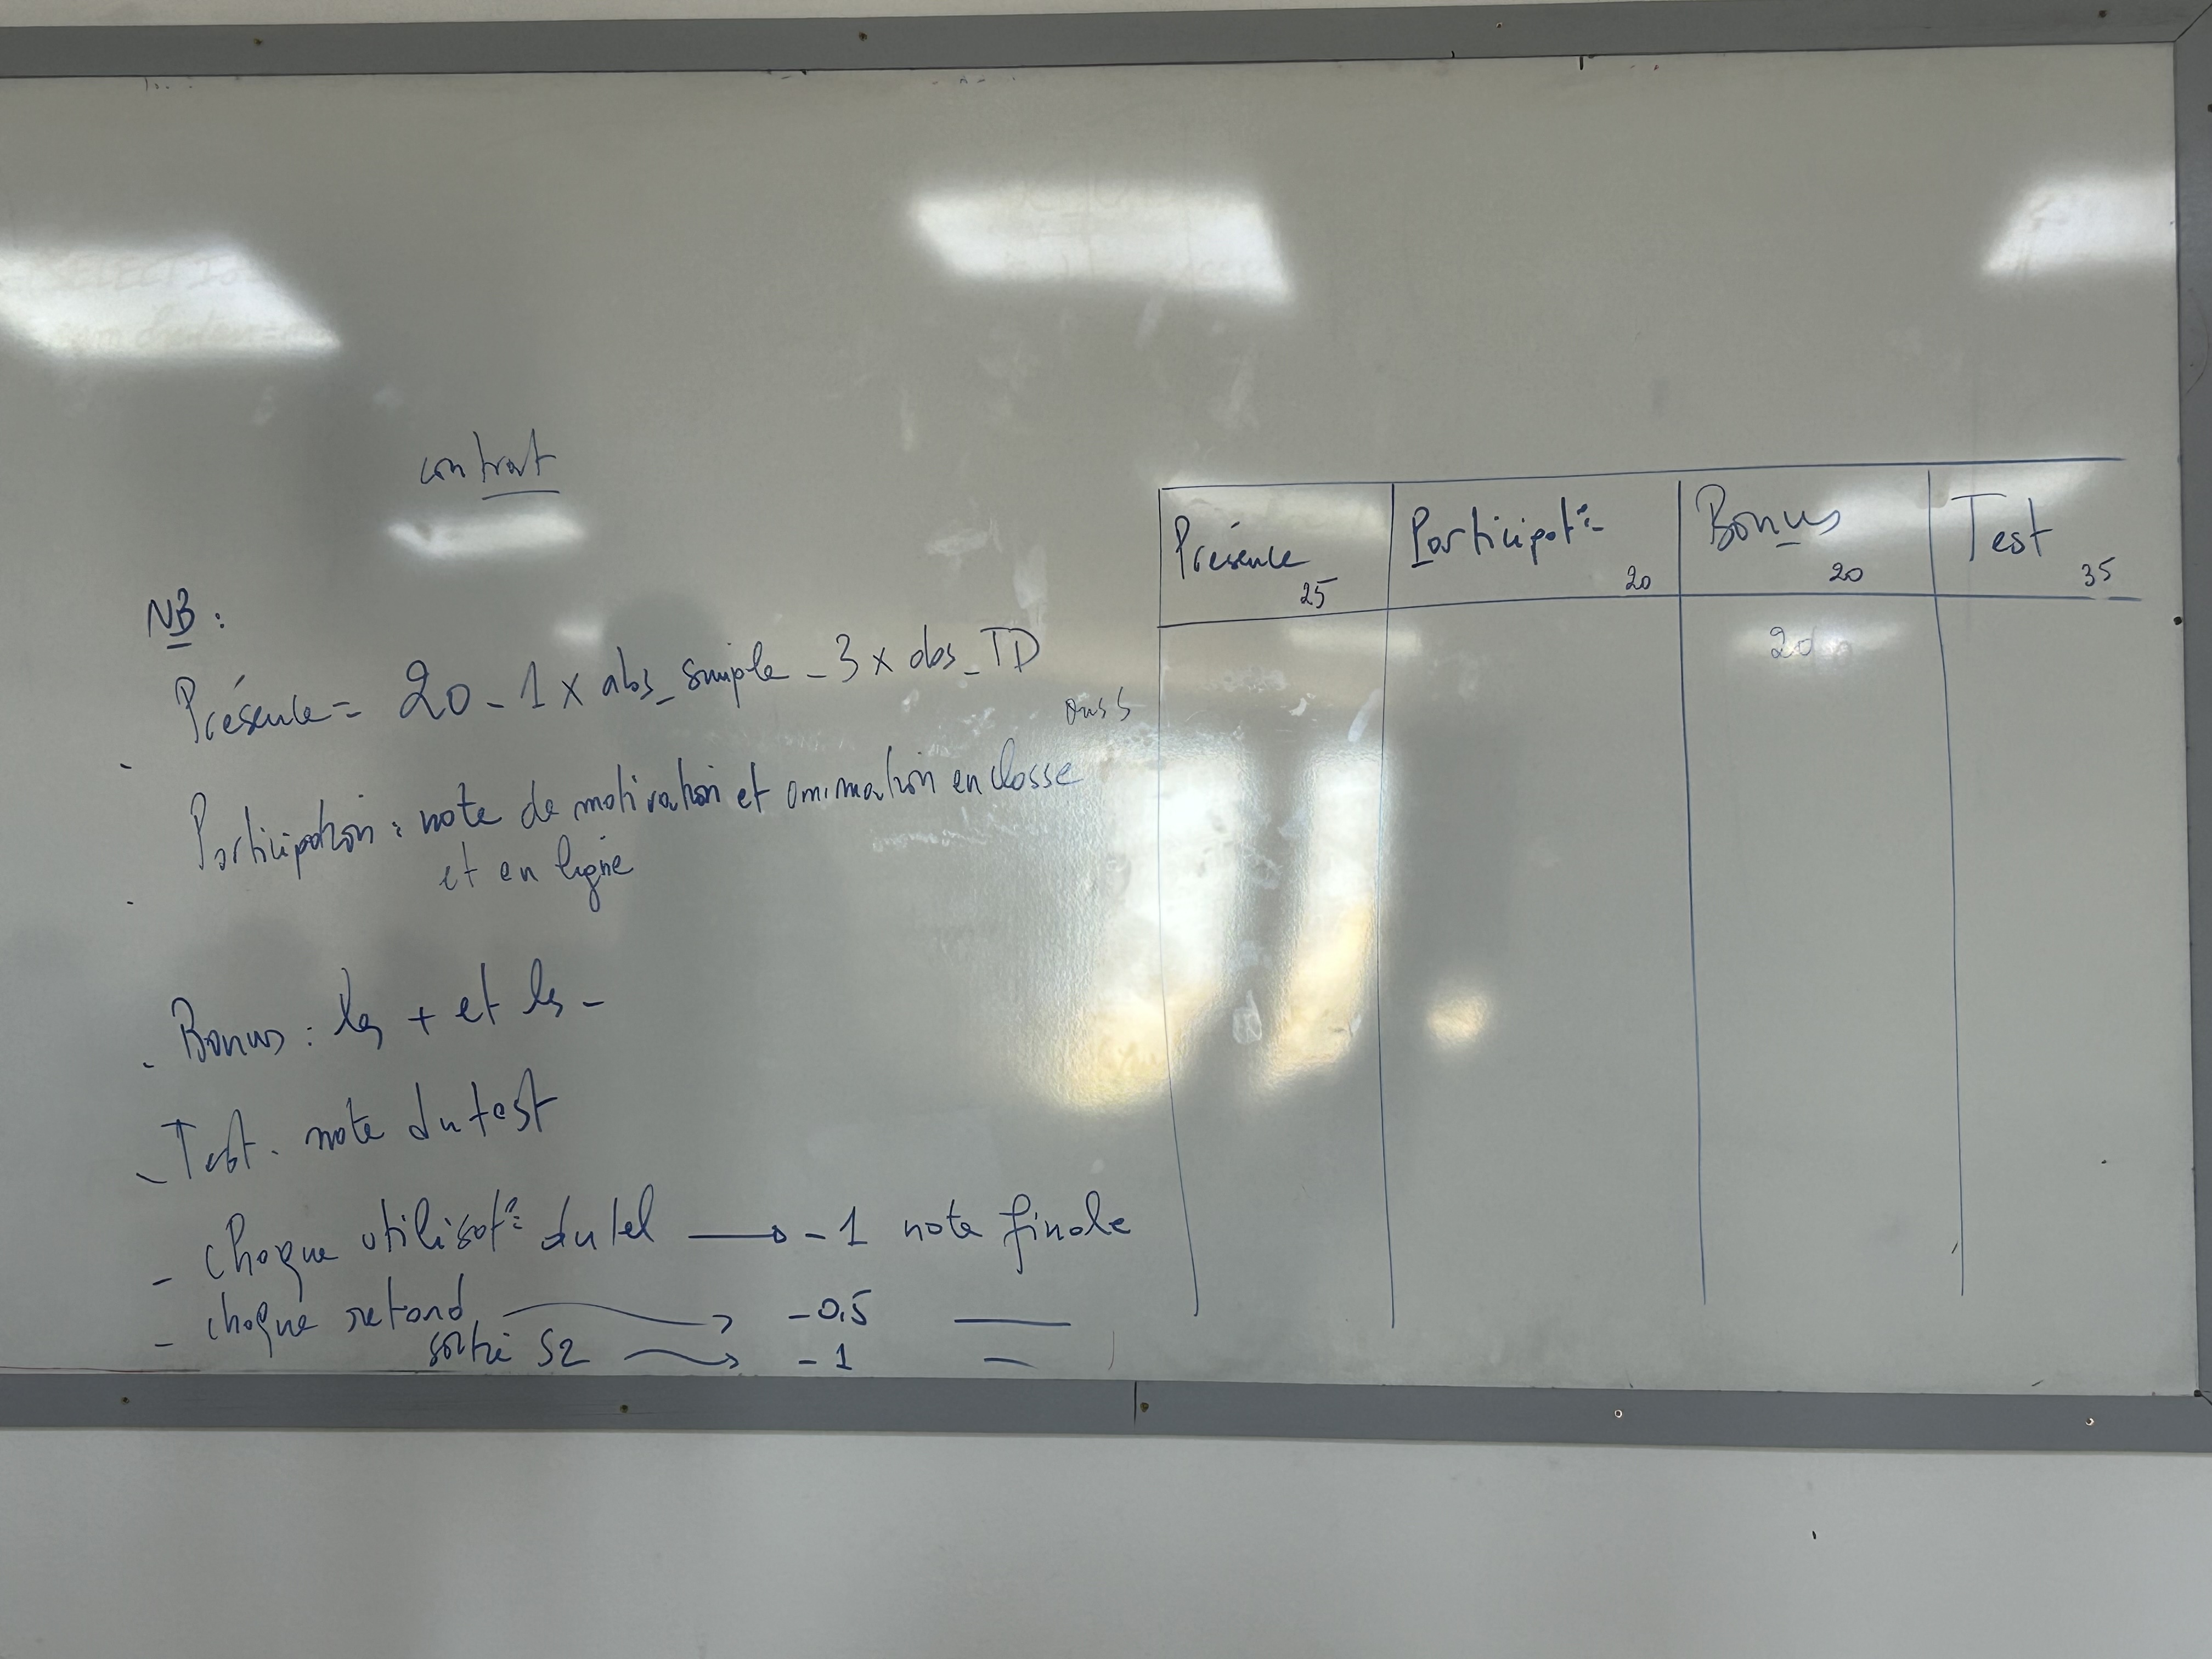 contrat
NB :
Présence = 20 - 1 x abs_simple - 3 x abs_TD
Participation : note de motivation et animation en classe
et en ligne
- Bonus : les + et les -
- Test . note du test
- chaque utilisat° du tel → -1 note finale
- chaque retard → -0,5 —
sortie S2 → -1 —
Présence 25 Participat° 20 Bonus 20 Test 35
20